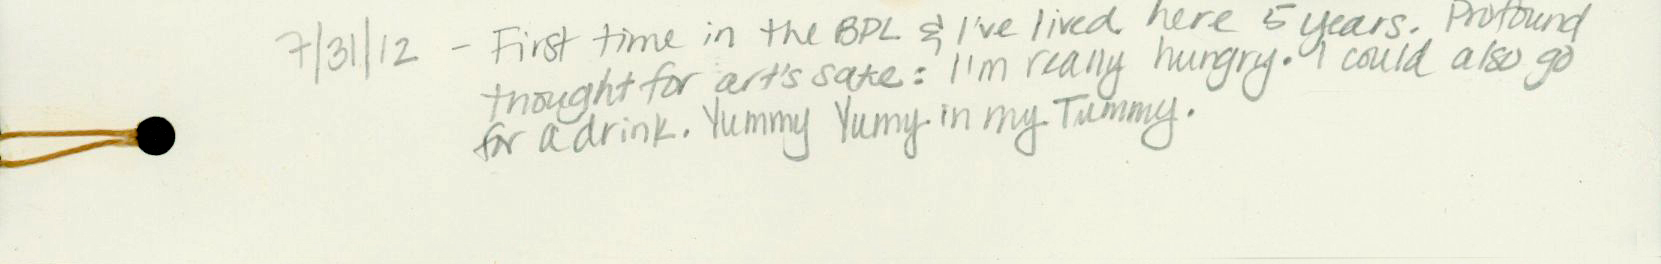 7/31/12 - First time in the BPL & I've lived here 5 years. Profound
thought for art's sake: I'm really hungry. I could also go
for a drink. Yummy Yumy in my Tummy.